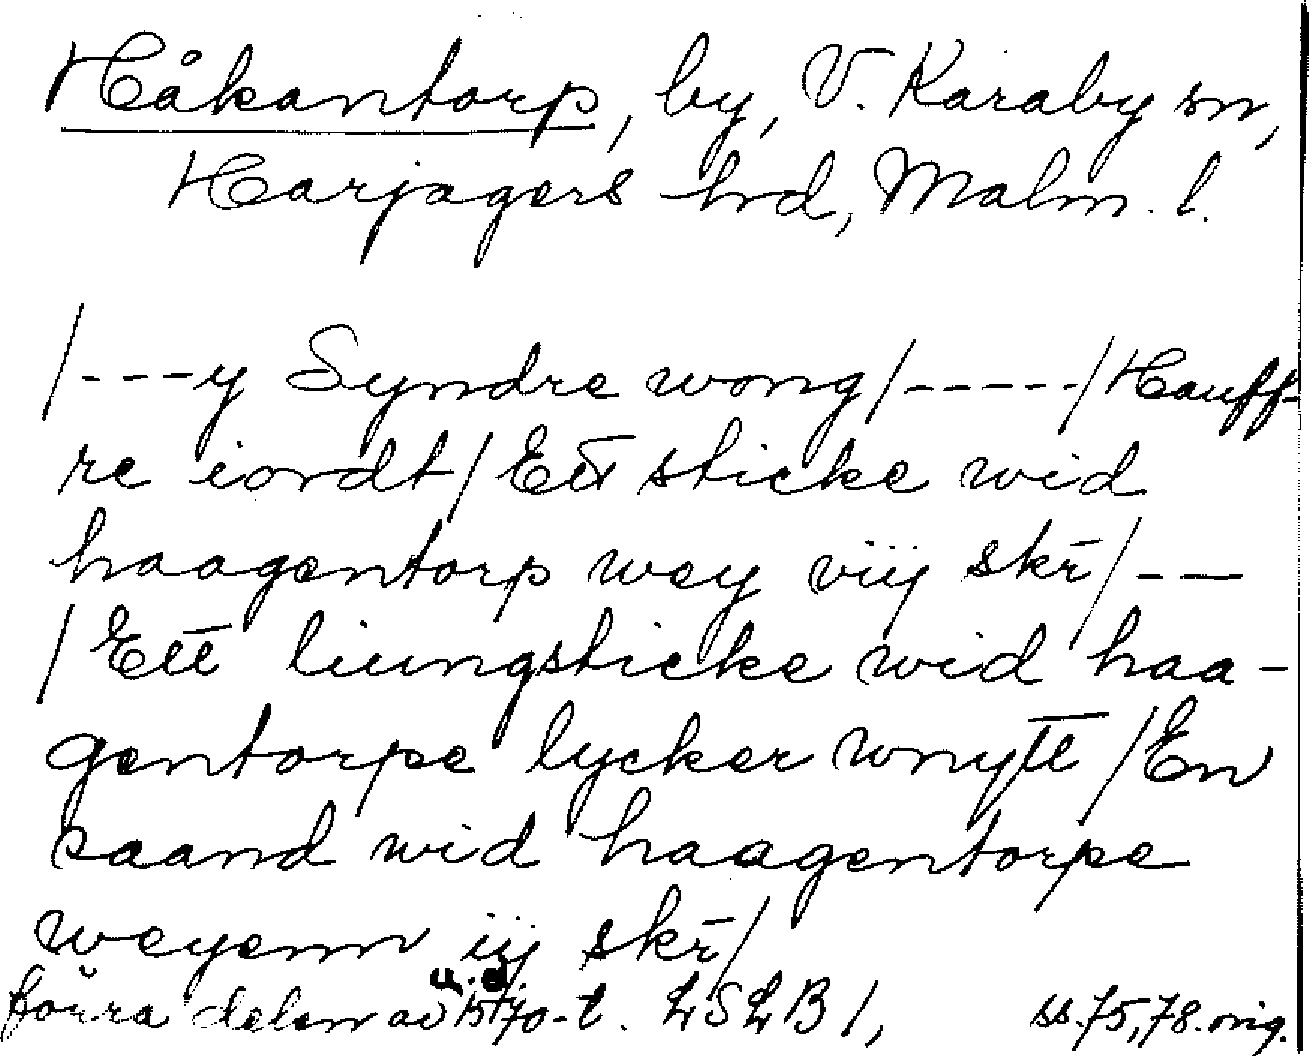 Håkantorp, by, V. Karaby sn,
Harjagers hrd, Malm. l.
/---y Syndre wong/-----/Hauff-
re iordt/Ett sticke wid
haagentorp wey viij skr̄/---
/Ett liungsticke wid haa-
gentorpe lycker wnytt/En
raand wid haagentorpe
weyenn iij skr̄/
förra delen av 1570-t. u.d. LSLB 1, ss. 75, 78. orig.